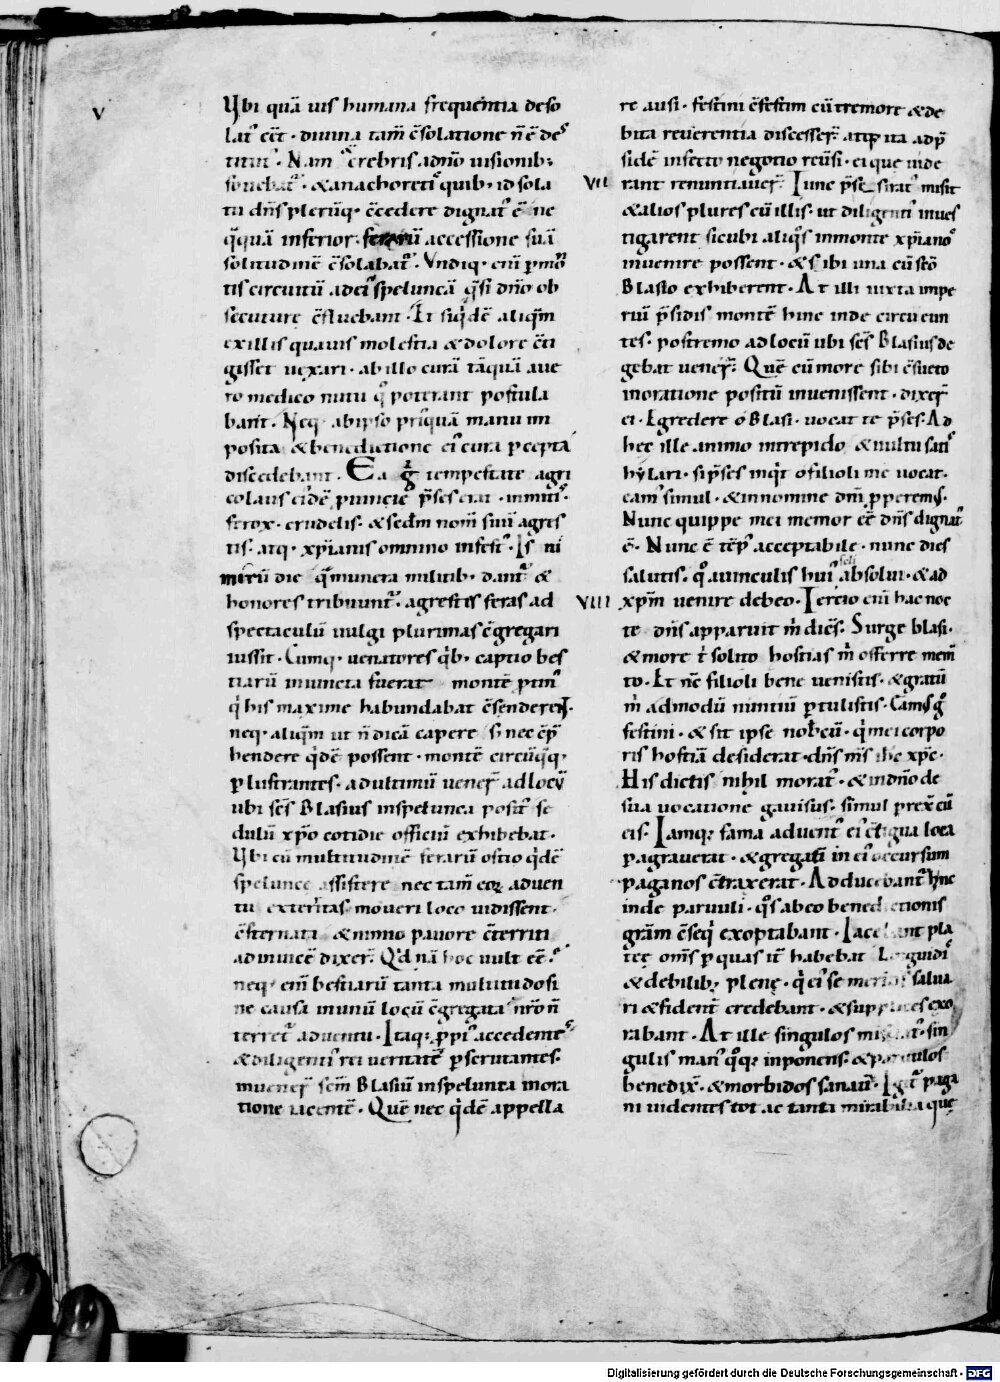 V
Vbi quā uis humana frequentia deso
lat᷒ eēt · diuina tam̄ c̄solatione n̄ ē de
titut᷒ · Nam & crebris a dn̄o uisionib;
fouebat᷒ · & anachoretis quib; id sola
tii dn̄s pleruq; c̄cedere dignat᷒ ē ne
q̄quā inferior · ferarū accessione suā
solitudinē c̄solabat᷒ · Vndiq; eni᷒ p mō
tis circuitū ad ei᷒ speluncā q̄si dn̄o ob
secuture c̄fluebant · Et siq᷒dē aliq̄m
ex illis quauis molestia & dolore c̄ti
gisset uexari · ab illo curā tāquā a ue
ro medico nutu q᷒ poterant postula
bant · Neq; ab ipso pri᷒quā manu im
posita & benedictione ei᷒ cura pcepta
discedebant · Ea g᷒ tempestate agri
colaus ei᷒dē puincie p̄ses erat · inmitis ·
ferox · crudelis · & scd̄m nom̄ suū agres
tis · atq; xp̄ianis omnino infest᷒ · Is ni
mirū die q̄ munera militib; dant᷒ &
honores tribuunt᷒ · agrestes feras ad
spectaculū uulgi plurimas c̄gregari
iussit · Cumq; uenatores q᷒b; captio bes
tiarū iniuncta fuerat montē ptin᷒
q᷒ his maxime habundabat c̄scenderent ·
neq; aliq̄m ut n̄ dicā capere s; nec c̄p̄
hendere q᷒dē possent · montē circūq̄q;
plustrantes · ad ultimū uener̄ ad locū
ubi sc̄s Blasius in spelunca posit᷒ se
dulū xp̄o cotidie officiū exhibebat ·
Vbi cū multitudinē ferarū ostio q᷒dē
spelunce assistere nec tam̄ eoꝝ aduen
tu exterritas moueri loco uidissent ·
c̄sternati & nimio pauore c̄territi
adinuicē dixer̄ · Q᷒d nā hoc uult eē ·
neq; eni᷒ bestiarū tanta multitudo si
ne causa in unū locū c̄gregata n̄ro n̄
terret᷒ aduentu · Itaq; ppi᷒ accedentes
& diligenti᷒ rei ueritatē pscrutantes ·
inuener̄ scm̄ Blasiū in spelunca mora
tione iacentē · Quē nec q᷒dē appella
re ausi · festini c̄festim cū tremore & de
bita reuerentia discesser̄ atq; ita ad p̄
sidē infecto negotio reu᷒si · ei que uide
VII rant renuntiauer̄ · Tunc p̄ses irat᷒ misit
& alios plures cū illis · ut diligenti᷒ inues
tigarent sicubi aliq᷒s in monte xp̄ianos
inuenire possent · & sibi una cū sc̄o
Blasio exhiberent · At illi iuxta impe
riū p̄sidis montē hinc inde circueun
tes · postremo ad locū ubi sc̄s Blasius de
gebat uener̄ · Quē cū more sibi c̄sueto
in oratione positū inuenissent · dixer̄
ei · Egredere o Blasi · uocat te p̄ses · Ad
hec ille animo intrepido & uultu satis
hylari · si p̄ses inq᷒t o filioli me uocat ·
eam᷒ simul · & in nomine dn̄i pperem᷒ ·
Nunc quippe mei memor eē dn̄s dignat᷒
ē · Nunc ē tēp᷒ acceptabile · nunc dies
salutis · q᷒ a uinculis hui᷒ scl̄i absolui · & ad
VIII xp̄m uenire debeo · Tercio eni᷒ hac noc
te dn̄s apparuit m᷒ dicēs · Surge blasi ·
& more t᷒ solito hostias m᷒ offerre mem̄
to · Et nc̄ filioli bene uenistis · & gratū
m᷒ admodū nuntiū ptulistis · Eam᷒ g᷒
festini · & sit ipse nobcū · q᷒ mei corpo
ris hostiā desiderat · dn̄s m̄s ihc xpc ·
His dictis nihil morat᷒ · & in dn̄o de
sua uocatione gauisus · simul prex᷒ cū
eis · Iamq; fama aduent᷒ ei᷒ c̄tigua loca
pagrauerat · & gregati᷒ in ei᷒ occursum
paganos c̄traxerat · Adducebant᷒ hinc
inde paruuli · q᷒s ab eo benedictionis
grām c̄seq᷒ exoptabant · Iacebant pla
tee om̄s p quas it᷒ habebat languidis
& debilib; plenę · q᷒ ei᷒ se meritis salua
ri & fident᷒ credebant · & supplices exo
rabant · At ille singulos miserat᷒ · sin
gulis man᷒ q᷒q; inponens · & paruulos
benedix᷒ · & morbidos sanau᷒ · Igit᷒ paga
ni uidentes tot ac tanta mirabilia que
Digitalisierung gefördert durch die Deutsche Forschungsgemeinschaft - DFG